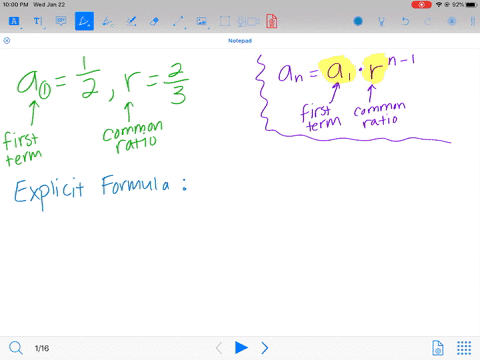 10:00 PM Wed Jan 22
92%
Notepad
a₁ = 1/2, r = 2/3
first term
common ratio
aₙ = a₁ · r^(n-1)
first term
common ratio
Explicit Formula:
1/16